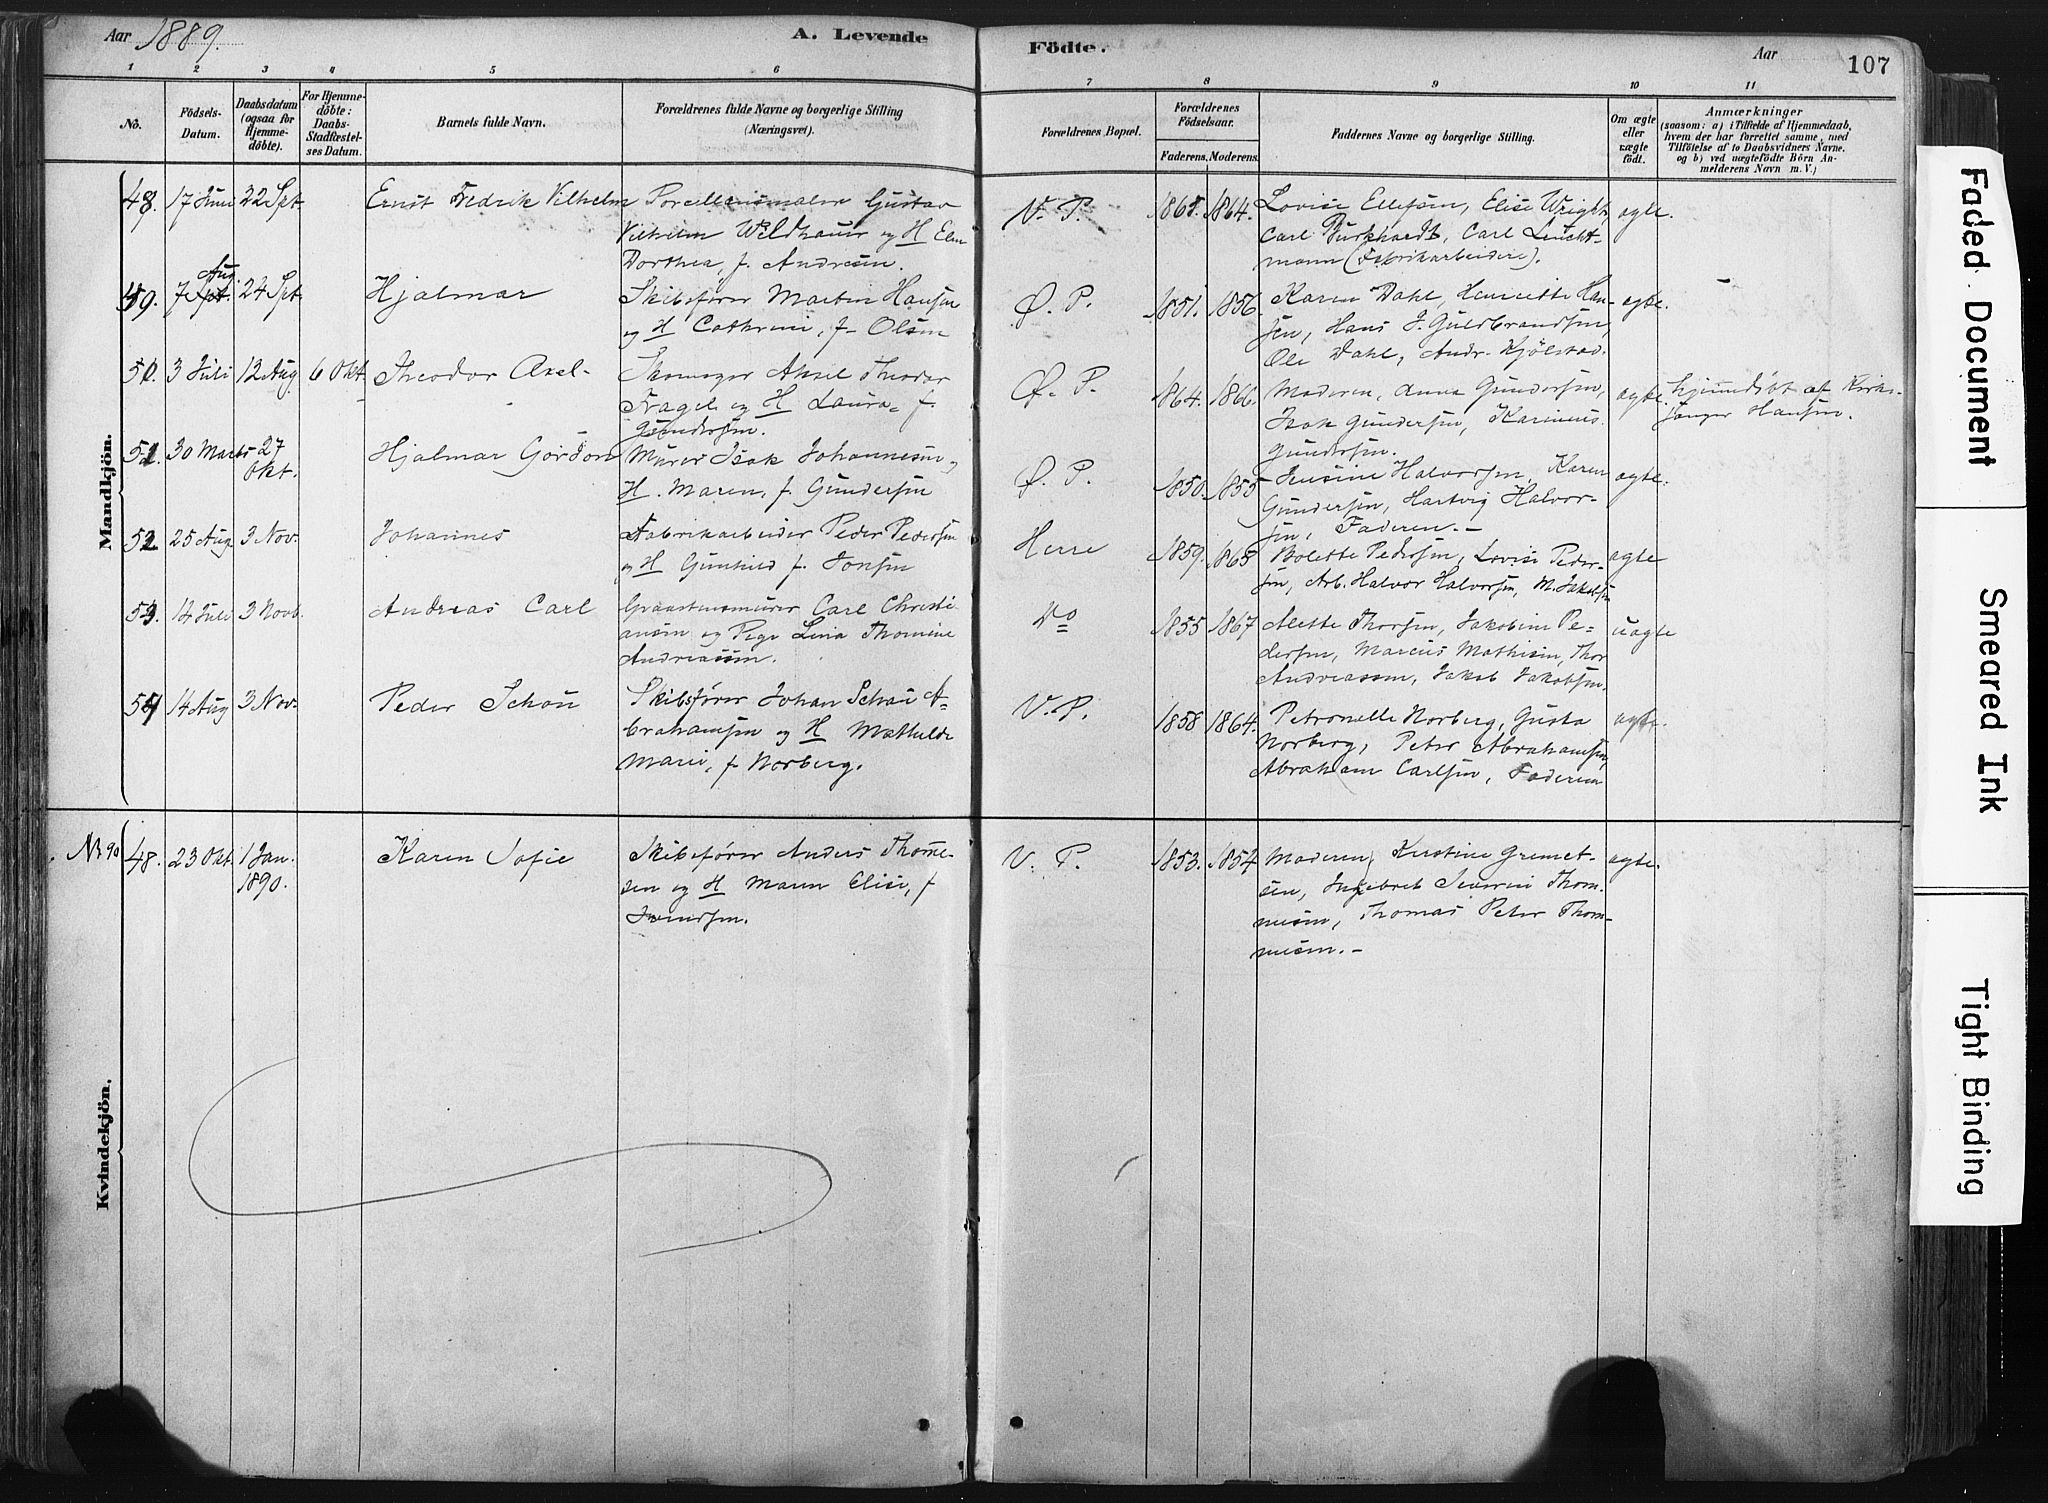 Aar 1889.
A. Levende
Födte.
Aar
107
1 2 3 4 5 6 7 8 9 10 11
No.
Födsels-
Datum.
Daabsdatum
(ogsaa for
Hjemme-
döbte).
For Hjemme-
döbte:
Daabs-
Stadfæstel-
ses Datum.
Barnets fulde Navn.
Forældrenes fulde Navne og borgerlige Stilling
(Næringsvei).
Forældrenes Bopæl.
Forældrenes
Födselsaar.
Faderens. Moderens.
Faddernes Navne og borgerlige Stilling.
Om ægte
eller
uægte
födt.
Anmærkninger
(saasom: a) i Tilfælde af Hjemmedaab,
hvem der har forrettet samme, med
Tilföielse af to Daabsvidners Navne,
og b) ved uægtefödte Börn An-
melderens Navn m. V.)
Mandkjön.
48. 17 Juni 22 Spt. Ernst Fredrik Vilhelm
Porcellensmaler Gustav
Vilhelm Wildhauer og H
Dorthea, f. Andresen.
V. P. 1865. 1864.
Lovise Ellefsen, Elise Wright
Carl Burkhardt, Carl Leucht-
mann (Fabrikarbeidere).
ægte.
Aug
7 Spt. 24 Spt. Hjalmar
Skibsfører Martin Hansen
og H Cathrine, f. Olsen
Ø. P. 1851. 1856.
Karen Dahl, Henriette Han-
sen, Hans J. Guldbrandsen
Ole Dahl, Andr. Kjølstad.
ægte.
3 Juli 12 Aug 6 Okt. Theodor Axel-
Skomager Aksel Theodor
og H Laura, f.
Gundersen.
Ø. P. 1864. 1866.
Moderen, Anna Gundersen,
Isak Gundersen, Karinius
Gundersen.
ægte.
Hjemmdøbt af Kirke-
sanger Hansen.
30 Marts 27
Okt. Hjalmar Gordon
Murer Isak Johannesen og
H. Maren, f. Gundersen
Ø. P. 1850. 1855
Jensine Halvorsen, Karen
Gundersen, Hartvig Halvor-
sen, Faderen.-
ægte.
52 25 Aug 3 Nov. Johannes
Fabrikarbeider Peder Pedersen
og H Gunhild f. Jonsen
Herre 1859. 1865
Bolette Pedersen, Lovise Peder-
sen, Arb. Halvor Halvorsen, M. Jakobsen
ægte
53. 14 Juli 3 Novb. Andreas Carl
Graastensmurer Carl Christi-
ansen og Pige Lina Thomine
Andreassen.
Do 1855 1867
Alette Thorsen, Jakobine Pe-
dersen, Marcus Mathisen, Thor
Andreassen, Jakob Jakobsen.
uægte
54 14 Aug 3 Nov. Peder Schou
Skibsfører Johan Schou A-
brahamsen og H Mathilde
Marie, f. Norberg.
V. P. 1858 1864.
Petronelle Norberg, Gusta
Norberg, Peter Abrahamsen,
Abraham Carlsen, Faderen
ægte.
Kvindekjön.
48. 23 Okt. 1 Jan.
1890. Karen Sofie
Skibsfører Anders Thomme-
sen og H Maren Elise, f.
Svendsen.
V. P. 1853. 1854
Moderen, Kirstine Gremet-
sen, Ingebret Severin Thom-
mesen, Thomas Peter Thom-
mesen.-
ægte.
Faded Document
Smeared Ink
Tight Binding